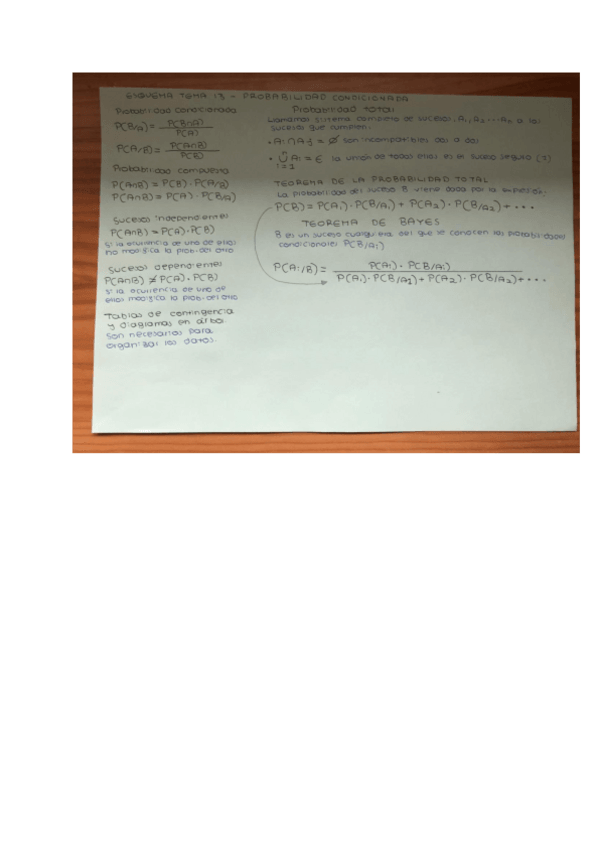 ESQUEMA TEMA 13 - PROBABILIDAD CONDICIONADA
Probabilidad condicionada
P(B/A) = P(B∩A) / P(A)
P(A/B) = P(A∩B) / P(B)
Probabilidad compuesta
P(A∩B) = P(B) · P(A/B)
P(A∩B) = P(A) · P(B/A)
Sucesos independientes
P(A∩B) = P(A) · P(B)
si la ocurrencia de uno de ellos
no modifica la prob. del otro
Sucesos dependientes
P(A∩B) ≠ P(A) · P(B)
si la ocurrencia de uno de
ellos modifica la prob. del otro
Tablas de contingencia
y diagramas en árbol.
Son necesarios para
organizar los datos.
Probabilidad total
Llamamos sistema completo de sucesos, A1, A2 ... An a los
sucesos que cumplen:
• Ai ∩ Aj = Ø son incompatibles dos a dos
• ∪ Ai = E la unión de todos ellos es el suceso seguro
n
i=1
TEOREMA DE LA PROBABILIDAD TOTAL
La probabilidad del suceso B viene dada por la expresión:
P(B) = P(A1) · P(B/A1) + P(A2) · P(B/A2) + ...
TEOREMA DE BAYES
B es un suceso cualquiera del que se conocen las probabilidades
condicionales P(B/Ai)
P(Ai/B) = P(Ai) · P(B/Ai) / P(A1) · P(B/A1) + P(A2) · P(B/A2) + ...